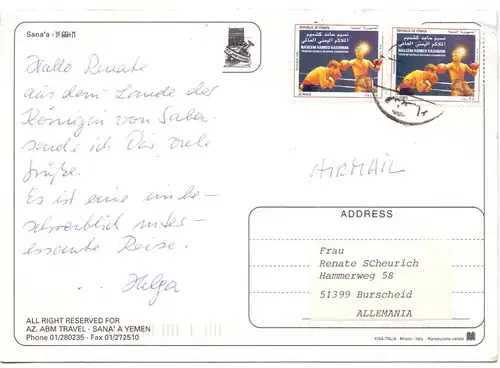 Sana'a -
REPUBLIC OF YEMEN
نسيم حامد كشميم
الملاكم اليمني العالمي
NASEEM HAMED KASHMIM
REPUBLIC OF YEMEN
نسيم حامد كشميم
الملاكم اليمني العالمي
NASEEM HAMED KASHMIM
Hallo Renate
aus dem Lande der
Königin von Saba
sende ich Dir viele
Grüße.
Es ist eine unbe-
schreiblich inter-
essante Reise.
Helga
AIRMAIL
ADDRESS
Frau
Renate SCheurich
Hammerweg 58
51399 Burscheid
ALLEMANIA
ALL RIGHT RESERVED FOR
AZ. ABM TRAVEL - SANA' A YEMEN
Phone 01/280235 - Fax 01/272510
KINA ITALIA - Milano - Italy - Riproduzione vietata